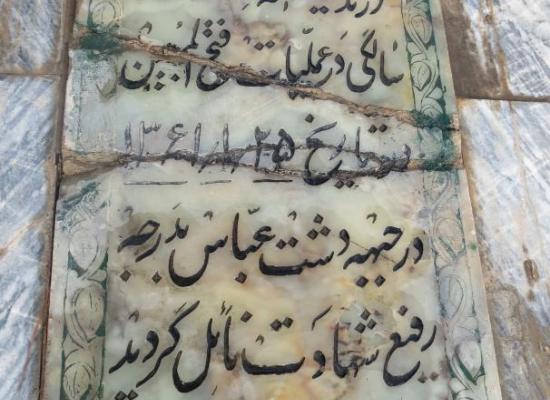 سالگی در عملیات فتح المبین
در تاریخ ۱۳۶۱/۱/۲۵
در جبهه دشت عباس بدرجه
رفیع شهادت نائل گردید